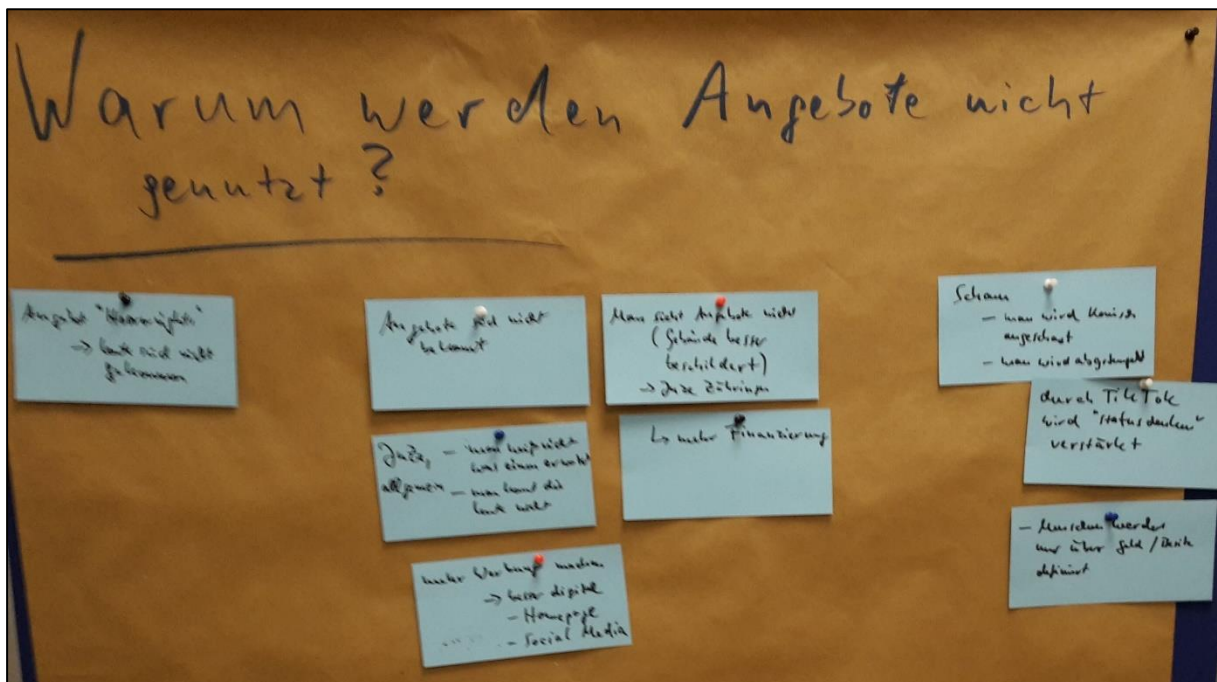 Warum werden Angebote nicht
genutzt?
Angebot
→ Leute sind nicht
gekommen
Angebote sind nicht
bekannt
Juze, – man weiß nicht
was einen erwartet
allgemein – man kennt die
Leute nicht
mehr Werbung machen
→ besser digital
– Homepage
– Social Media
Man sieht Angebote nicht
(Gebäude besser
beschildert)
→ Juze Zähringen
↳ mehr Finanzierung
Scham
– man wird komisch
angeschaut
– man wird abgestempelt
durch TikTok
wird "Statusdenken"
verstärkt
– Menschen werden
nur über Geld / Besitz
definiert